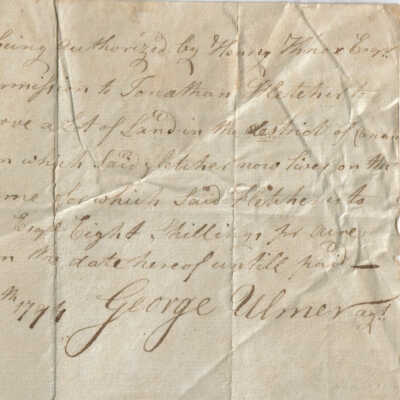 being authorized by Henry Knox Esqr
ermission to Jonathan Fletcher to
ove a Lot of Land in the District of Canaan
n which Said Fletcher now lives on the
ame for which Said Fletcher is to
Esqr Eight Shillings pr acre
m the date hereof untill paid —
th 1794 George Ulmer agt